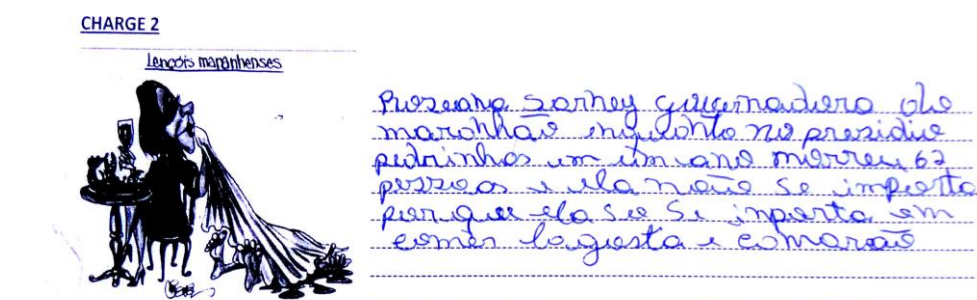 CHARGE 2
Lençóis maranhenses
Rozeana Sarney governadora do
maranhão enquanto no presidio
pedrinhas em um ano morreu 62
pessoas e ela não se importa
por que ela so se inporta em
comer lagosta e camarão